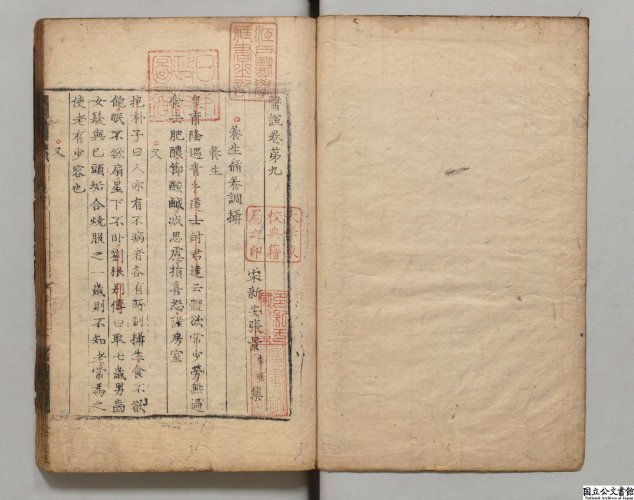 醫說卷第九
宋新安張景季明集
養生脩養調攝
養生
皇甫隆遇青牛道士封君達云體欲常少勞無過
食去肥醲節酸鹹減思慮損喜怒謹房室
又
抱朴子曰人亦有不病者各有所制攝生食不欲
飽眠不欲扇星下不卧劉根別傳曰取七歲男齒
女髮與己頭垢合燒服之一歲則不知老常為之
使老有少容也
又
江戸醫學
藏書之記
大學東
校典籍
局之印
国立公文書館
National Archives of Japan